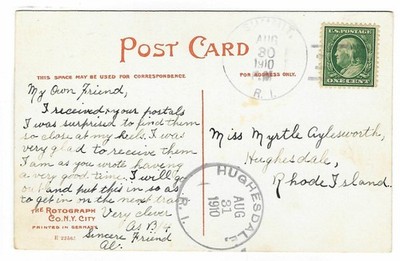 POST CARD
THIS SPACE MAY BE USED FOR CORRESPONDENCE.
FOR ADDRESS ONLY.
AUG
30
1910
R.I.
U.S. POSTAGE
My Own Friend,
I received your postals
I was surprised to find them
so close at my heels. I was
very glad to receive them
I am as you wrote having
a very good time. I will go
out and put this in so as
to get in on the next train.
Very clever
As B/4
Sincere Friend
Al.
Miss Myrtle Aylesworth,
Hughesdale,
Rhode Island.
HUGHESDALE
AUG
31
1910
R.I.
THE ROTOGRAPH
CO. N.Y. CITY
PRINTED IN GERMANY